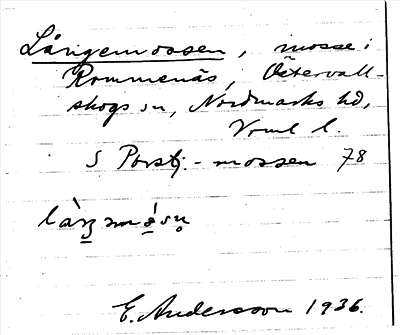 Långemossen, mosse i
Rommenäs, Östervall-
skogs sn, Nordmarks hd,
Vrml l.
S Porstj.-mossen 78
E. Andersson 1936.